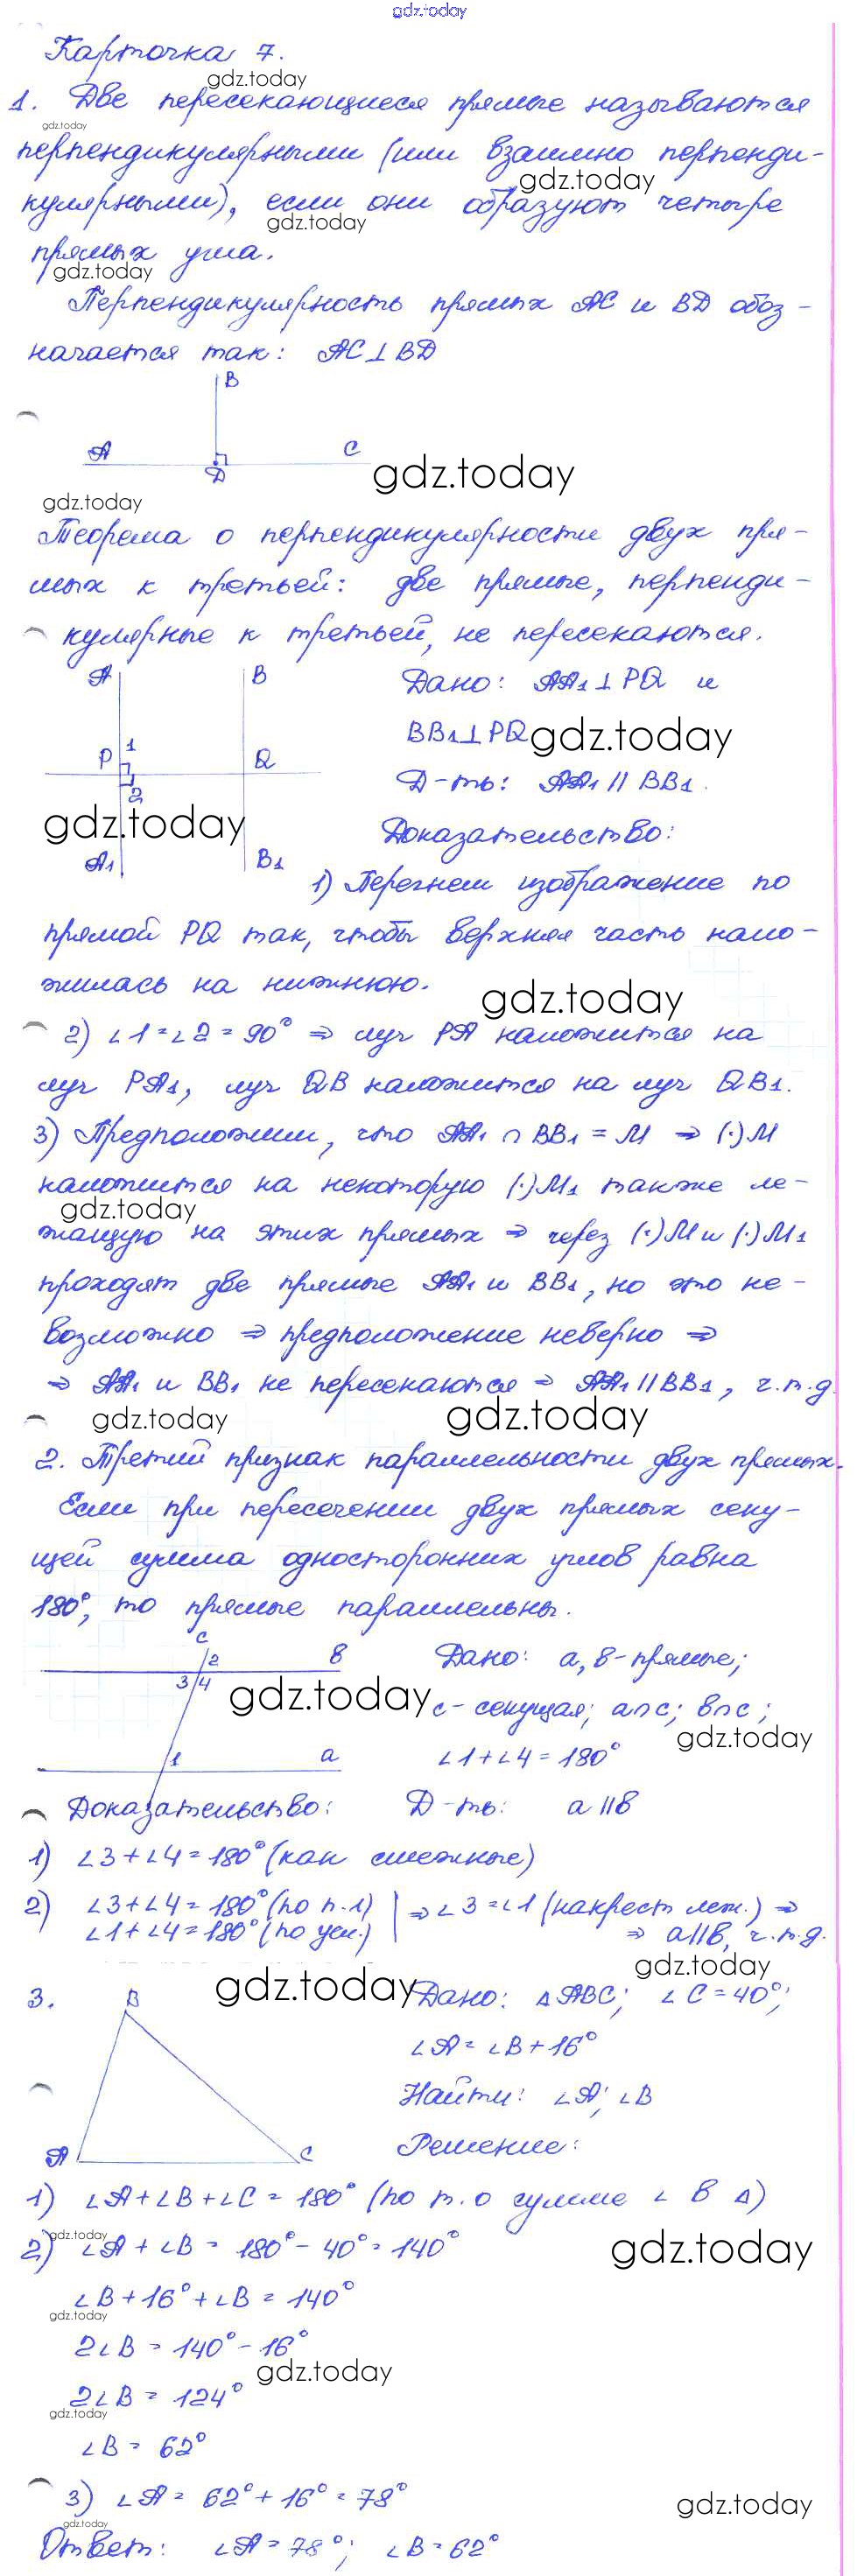 gdz.today
Карточка 7.
gdz.today
1. Две пересекающиеся прямые называются
gdz.today
перпендикулярными (или взаимно перпенди-
gdz.today
кулярными), если они образуют четыре
gdz.today
прямых угла.
gdz.today
Перпендикулярность прямых AC и BD обоз-
начается так: AC⊥BD
B
A
C
D
gdz.today
gdz.today
Теорема о перпендикулярности двух пря-
мых к третьей: две прямые, перпенди-
кулярные к третьей, не пересекаются.
A B
Дано: AA₁⊥PQ и
BB₁⊥PQ
gdz.today
1
P Q
2
Д-ть: AA₁ || BB₁.
gdz.today
Доказательство:
A₁ B₁
1) Перегнем изображение по
прямой PQ так, чтобы верхняя часть нало-
жилась на нижнюю.
gdz.today
2) ∠1=∠2=90° ⇒ луч PA наложится на
луч PA₁, луч QB наложится на луч QB₁.
3) Предположим, что AA₁ ∩ BB₁ = M ⇒ (·)M
наложится на некоторую (·)M₁ также ле-
gdz.today
жащую на этих прямых ⇒ через (·)M и (·)M₁
проходят две прямые AA₁ и BB₁, но это не-
возможно ⇒ предположение неверно ⇒
⇒ AA₁ и BB₁ не пересекаются ⇒ AA₁ || BB₁, ч.т.д.
gdz.today
gdz.today
2. Третий признак параллельности двух прямых.
Если при пересечении двух прямых секу-
щей сумма односторонних углов равна
180°, то прямые параллельны.
c
2
b
3 4
Дано: a, b - прямые;
gdz.today
c - секущая; a∩c; b∩c;
gdz.today
1
a
∠1+∠4=180°
Доказательство: Д-ть: a || b
1) ∠3+∠4=180° (как смежные)
2) ∠3+∠4=180° (по п.1) | ⇒ ∠3=∠1 (накрест леж.) ⇒
∠1+∠4=180° (по усл.) | ⇒ a||b, ч.т.д.
gdz.today
gdz.today
3. B
Дано: △ABC; ∠C=40°;
∠A=∠B+16°
Найти: ∠A; ∠B
A C
Решение:
1) ∠A+∠B+∠C=180° (по т. о сумме ∠ в △)
gdz.today
2) ∠A+∠B=180°-40°=140°
gdz.today
∠B+16°+∠B=140°
gdz.today
2∠B=140°-16°
gdz.today
2∠B=124°
gdz.today
∠B=62°
3) ∠A=62°+16°=78°
gdz.today
gdz.today
Ответ: ∠A=78°; ∠B=62°